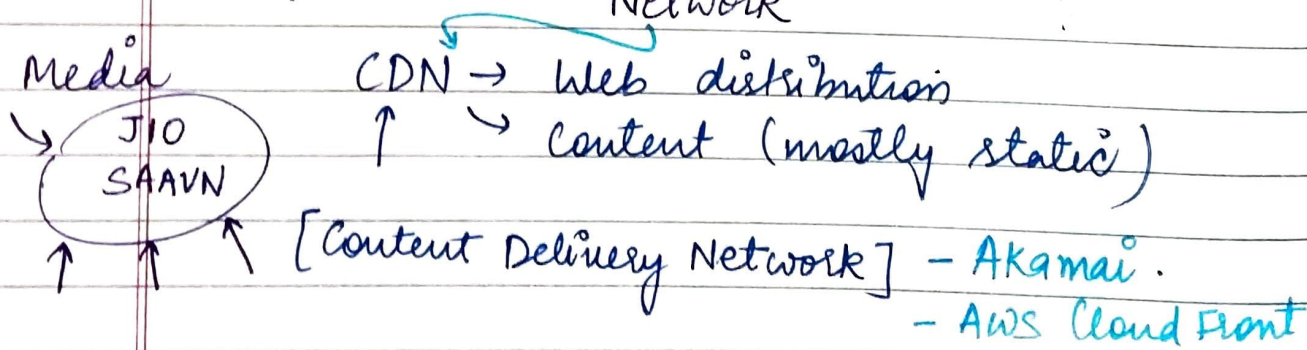 Network
Media CDN → Web distribution
JIO ↑ ↘ Content (mostly static)
SAAVN
[Content Delivery Network] - Akamai.
- AWS Cloud Front